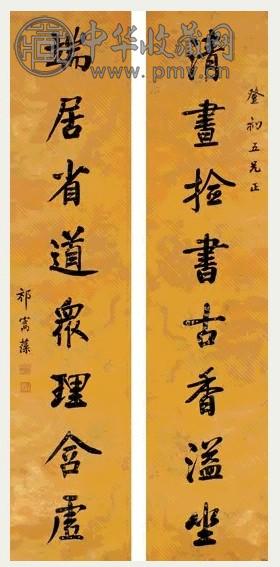 中华收藏网
www.pmv.cn
登初五兄正
清晝撿書古香溢坐
端居省道衆理含虛
祁寯藻